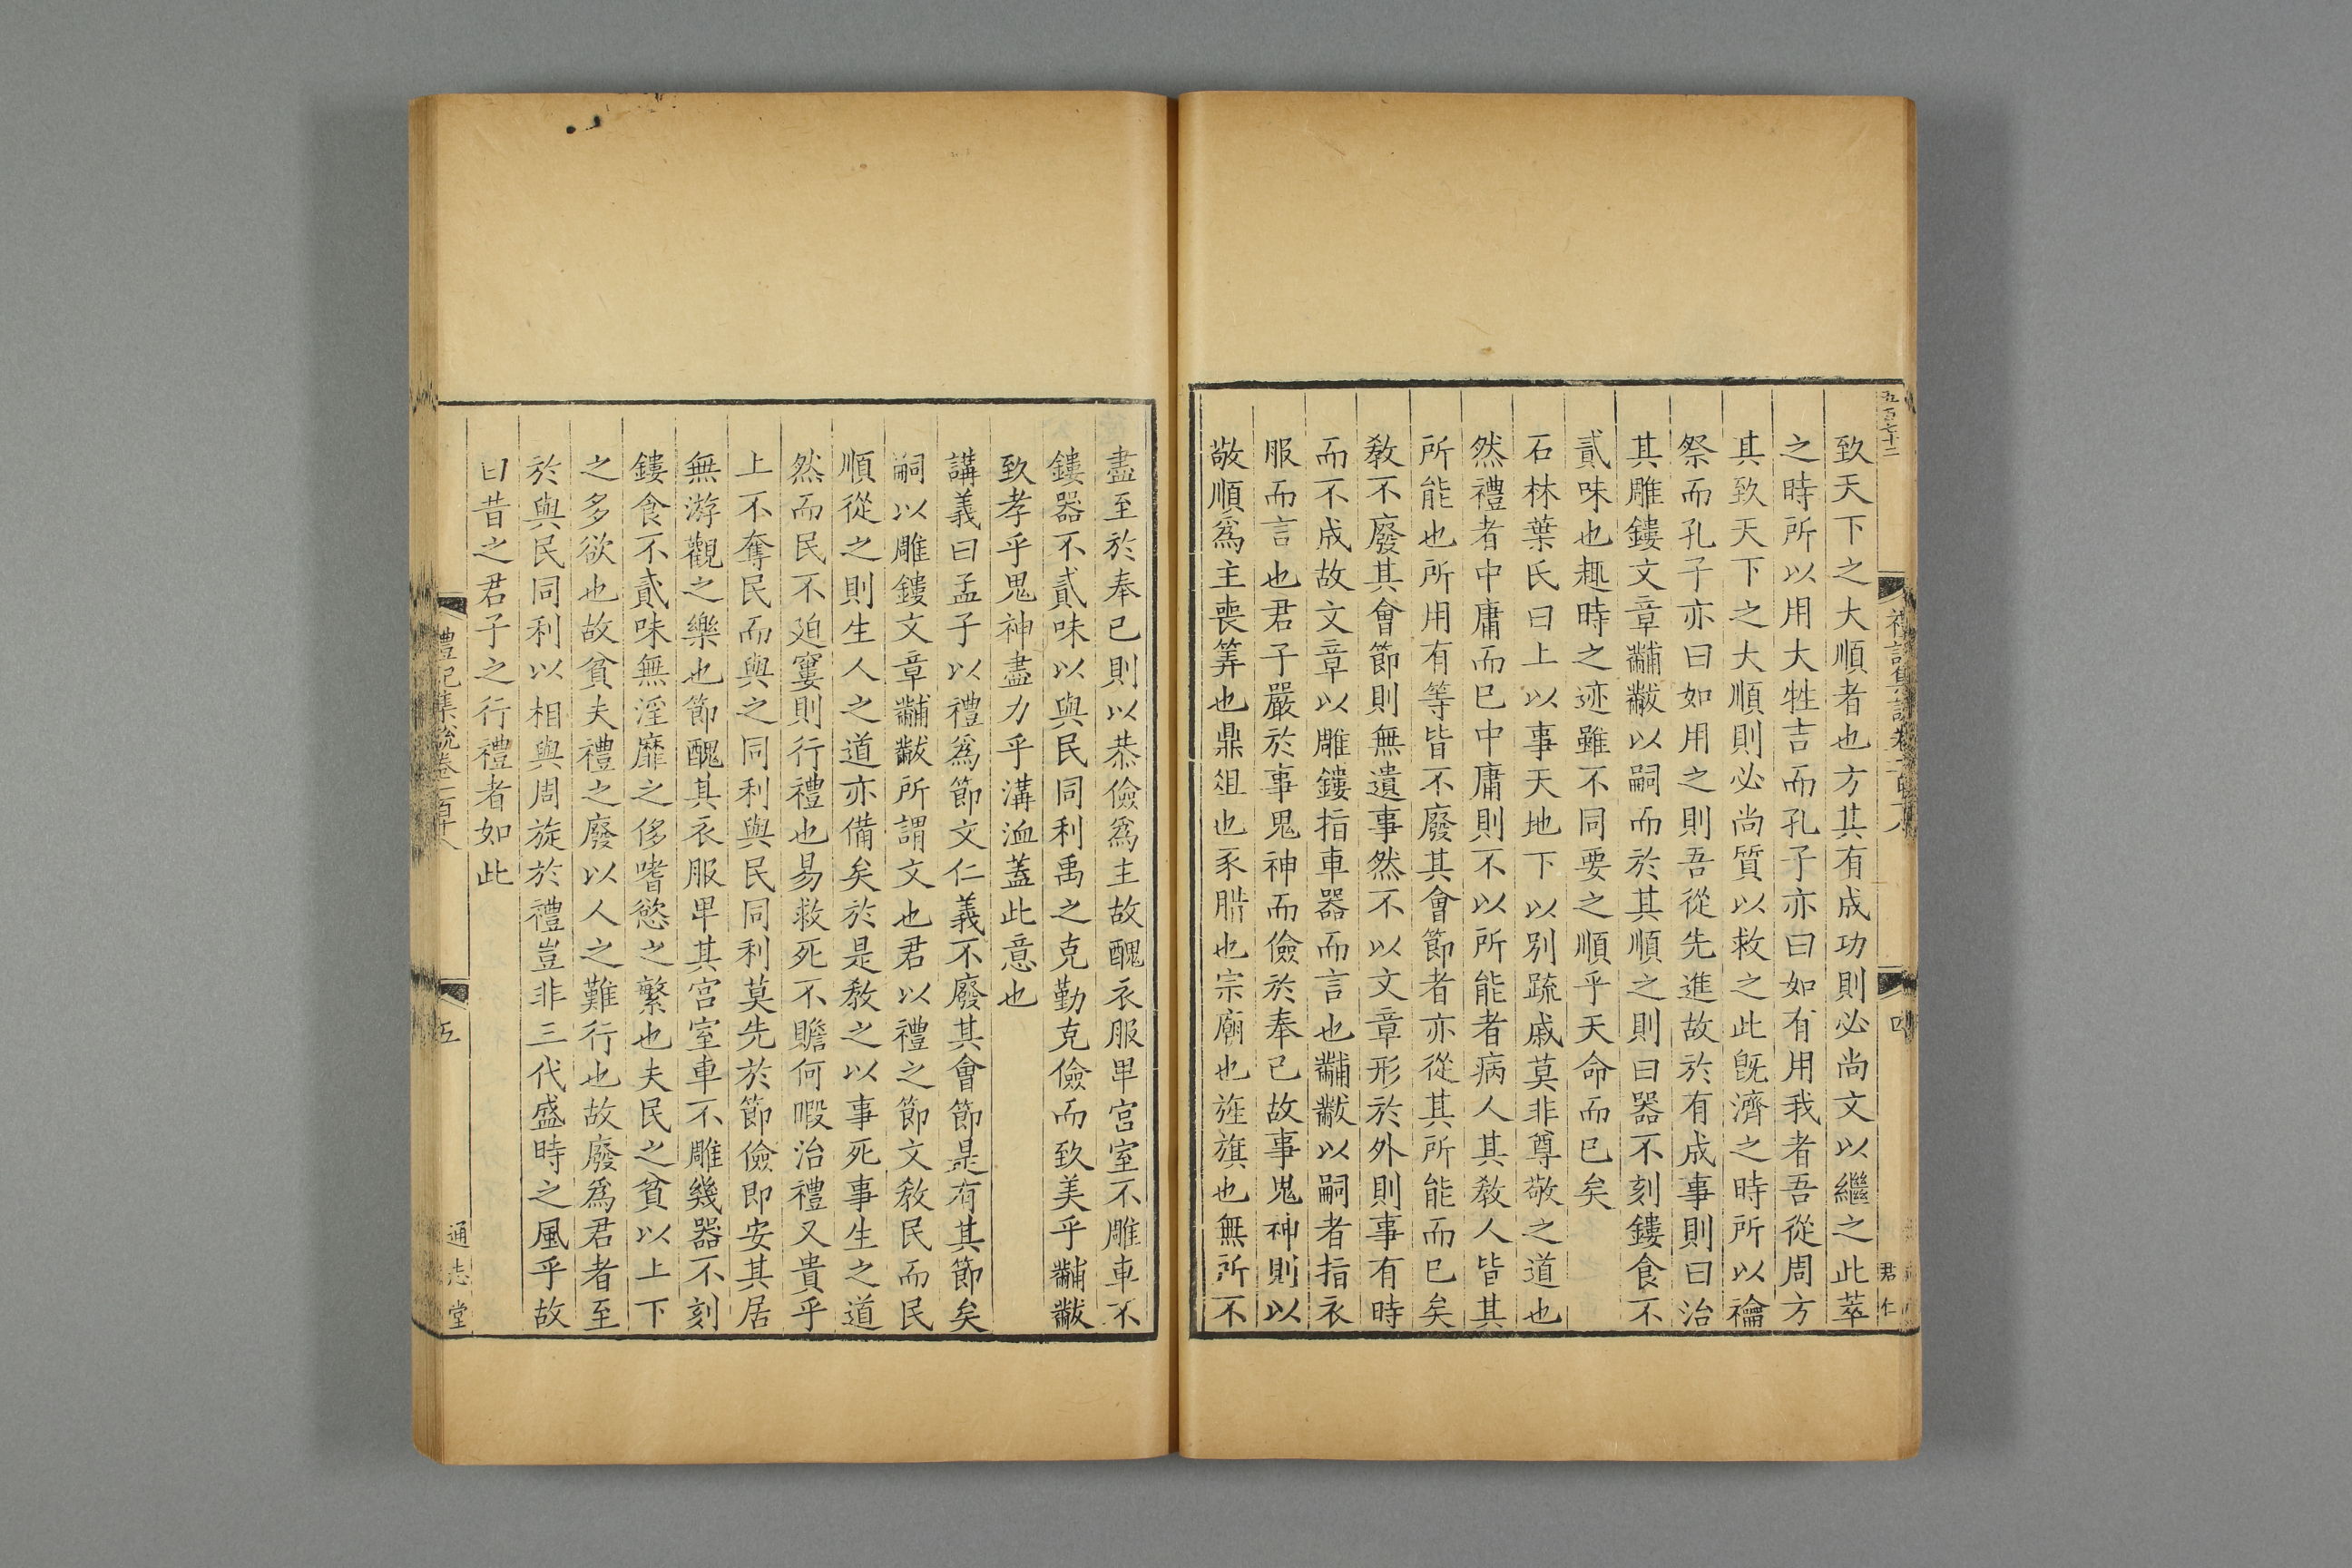 五百七十二
禮記集說卷一百十八
四
君仁
致天下之大順者也方其有成功則必尚文以繼之此萃
之時所以用大牲吉而孔子亦曰如有用我者吾從周方
其致天下之大順則必尚質以救之此旣濟之時所以禴
祭而孔子亦曰如用之則吾從先進故於有成事則曰治
其雕鏤文章黼黻以嗣而於其順之則曰器不刻鏤食不
貳味也趣時之迹雖不同要之順乎天命而已矣
石林葉氏曰上以事天地下以別疏戚莫非尊敬之道也
然禮者中庸而已中庸則不以所能者病人其敎人皆其
所能也所用有等皆不廢其會節者亦從其所能而已矣
敎不廢其會節則無遺事然不以文章形於外則事有時
而不成故文章以雕鏤指車器而言也黼黻以嗣者指衣
服而言也君子嚴於事鬼神而儉於奉已故事鬼神則以
敬順爲主喪筭也鼎俎也豕腊也宗廟也旌旗也無所不
盡至於奉已則以恭儉爲主故醜衣服卑宫室不雕車不
鏤器不貳味以與民同利禹之克勤克儉而致美乎黼黻
致孝乎鬼神盡力乎溝洫蓋此意也
講義曰孟子以禮爲節文仁義不廢其會節是有其節矣
嗣以雕鏤文章黼黻所謂文也君以禮之節文敎民而民
順從之則生人之道亦備矣於是敎之以事死事生之道
然而民不廹窶則行禮也易救死不贍何暇治禮又貴乎
上不奪民而與之同利與民同利莫先於節儉即安其居
無游觀之樂也節醜其衣服卑其宫室車不雕幾器不刻
鏤食不貳味無淫靡之侈嗜慾之繁也夫民之貧以上下
之多欲也故貧夫禮之廢以人之難行也故廢爲君者至
於與民同利以相與周旋於禮豈非三代盛時之風乎故
曰昔之君子之行禮者如此
禮記集說卷一百十八
五
通志堂